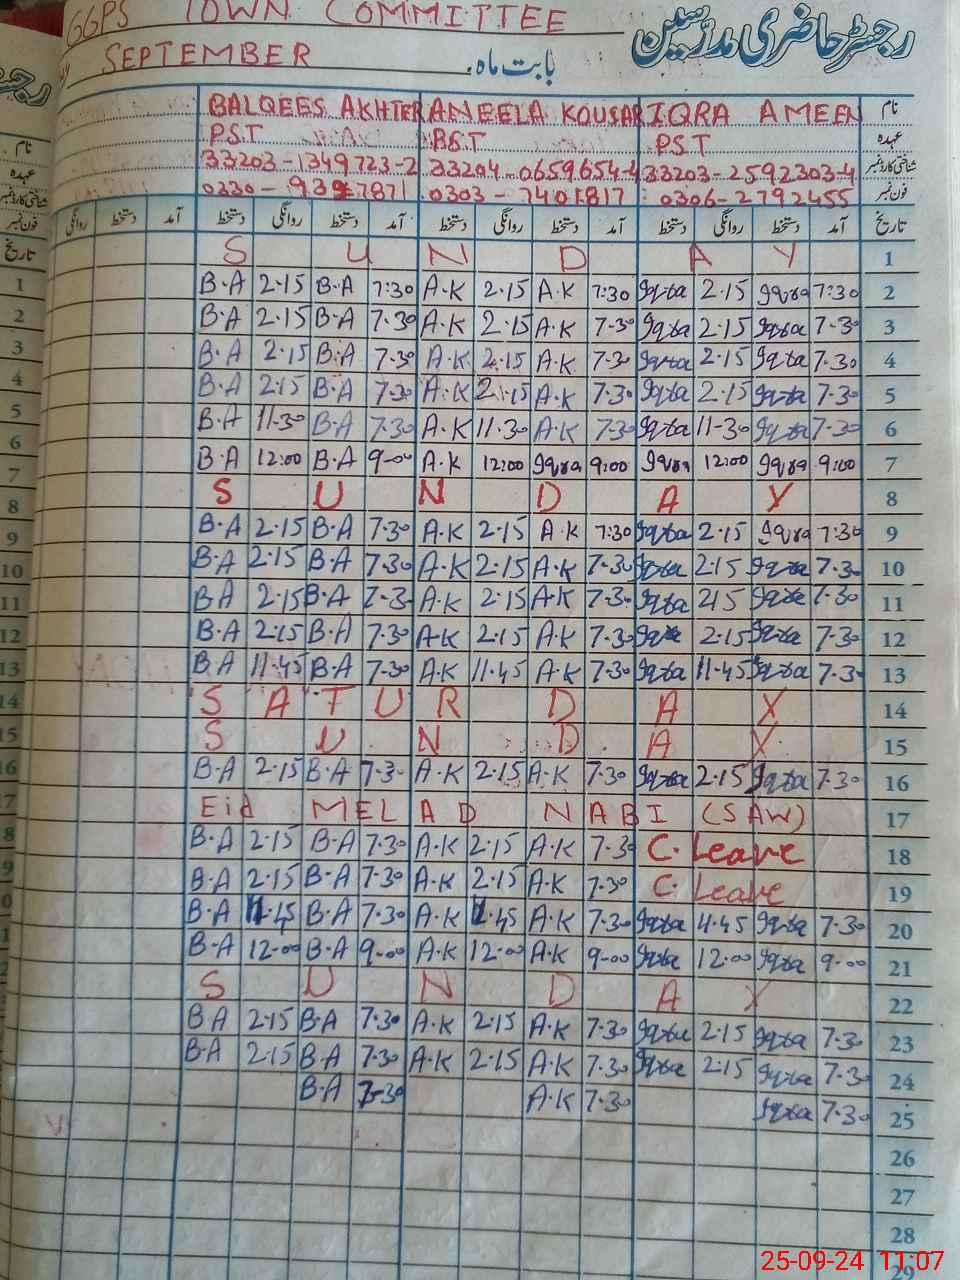 GGPS TOWN COMMITTEE
رجسٹر حاضری مدرّسین
SEPTEMBER بابت ماہ
BALQEES AKHTER ANEELA KOUSAR IQRA AMEEN نام
PST PST عہدہ
33203-1349723-2 33204-0659654-4 33203-2592303-4 شناختی کارڈ نمبر
0303-7401817 0306-2792455 فون نمبر
روانگی دستخط دستخط آمد دستخط روانگی دستخط آمد دستخط روانگی دستخط آمد دستخط روانگی دستخط آمد تاریخ
S U N D A Y 1
B.A 2.15 B.A 7:30 A.K 2.15 A.K 7:30 Iqra 2.15 Iqra 7:30 2
B.A 2.15 B.A 7.30 A.K 2.15 A.K 7.30 Iqra 2.15 Iqra 7.30 3
B.A 2.15 B.A 7.30 A.K 2.15 A.K 7.30 Iqra 2.15 Iqra 7.30 4
B.A 2.15 B.A 7.30 A.K 2.15 A.K 7.30 Iqra 2.15 Iqra 7.30 5
B.A 11.30 B.A 7.30 A.K 11.30 A.K 7.30 Iqra 11-30 Iqra 7.30 6
B.A 12:00 B.A 9-00 A.K 12:00 Iqra 9:00 Iqra 12:00 Iqra 9:00 7
S U N D A Y 8
B.A 2.15 B.A 7.30 A.K 2.15 A.K 7:30 Iqra 2.15 Iqra 7:30 9
B.A 2.15 B.A 7.30 A.K 2.15 A.K 7.30 Iqra 2.15 Iqra 7.30 10
BA 2.15 B.A 7-3. A.K 2.15 A.K 7.30 Iqra 215 Iqra 7.30 11
B.A 2.15 B.A 7.30 A.K 2.15 A.K 7.30 Iqra 2.15 Iqra 7.30 12
B.A 11.45 B.A 7.30 A.K 11.45 A.K 7.30 Iqra 11.45 Iqra 7.30 13
S A T U R D A Y 14
S U N D A Y 15
B.A 2.15 B.A 7.3. A.K 2.15 A.K 7.30 Iqra 2.15 Iqra 7.30 16
Eid MELAD NABI (SAW) 17
B.A 2.15 B.A 7.30 A.K 2.15 A.K 7.30 C. Leave 18
B.A 2.15 B.A 7.30 A.K 2.15 A.K 7.30 C. Leave 19
B.A 11.45 B.A 7.30 A.K 11.45 A.K 7.30 Iqra 11.45 Iqra 7.30 20
B.A 12.00 B.A 9-00 A.K 12.00 A.K 9-00 Iqra 12.00 Iqra 9-00 21
S U N D A Y 22
B.A 2.15 B.A 7.30 A.K 2.15 A.K 7.30 Iqra 2.15 Iqra 7.30 23
B.A 2.15 B.A 7.30 A.K 2.15 A.K 7.30 Iqra 2.15 Iqra 7.30 24
B.A 7-30 A.K 7.30 Iqra 7.30 25
26
27
28
29
25-09-24 11:07